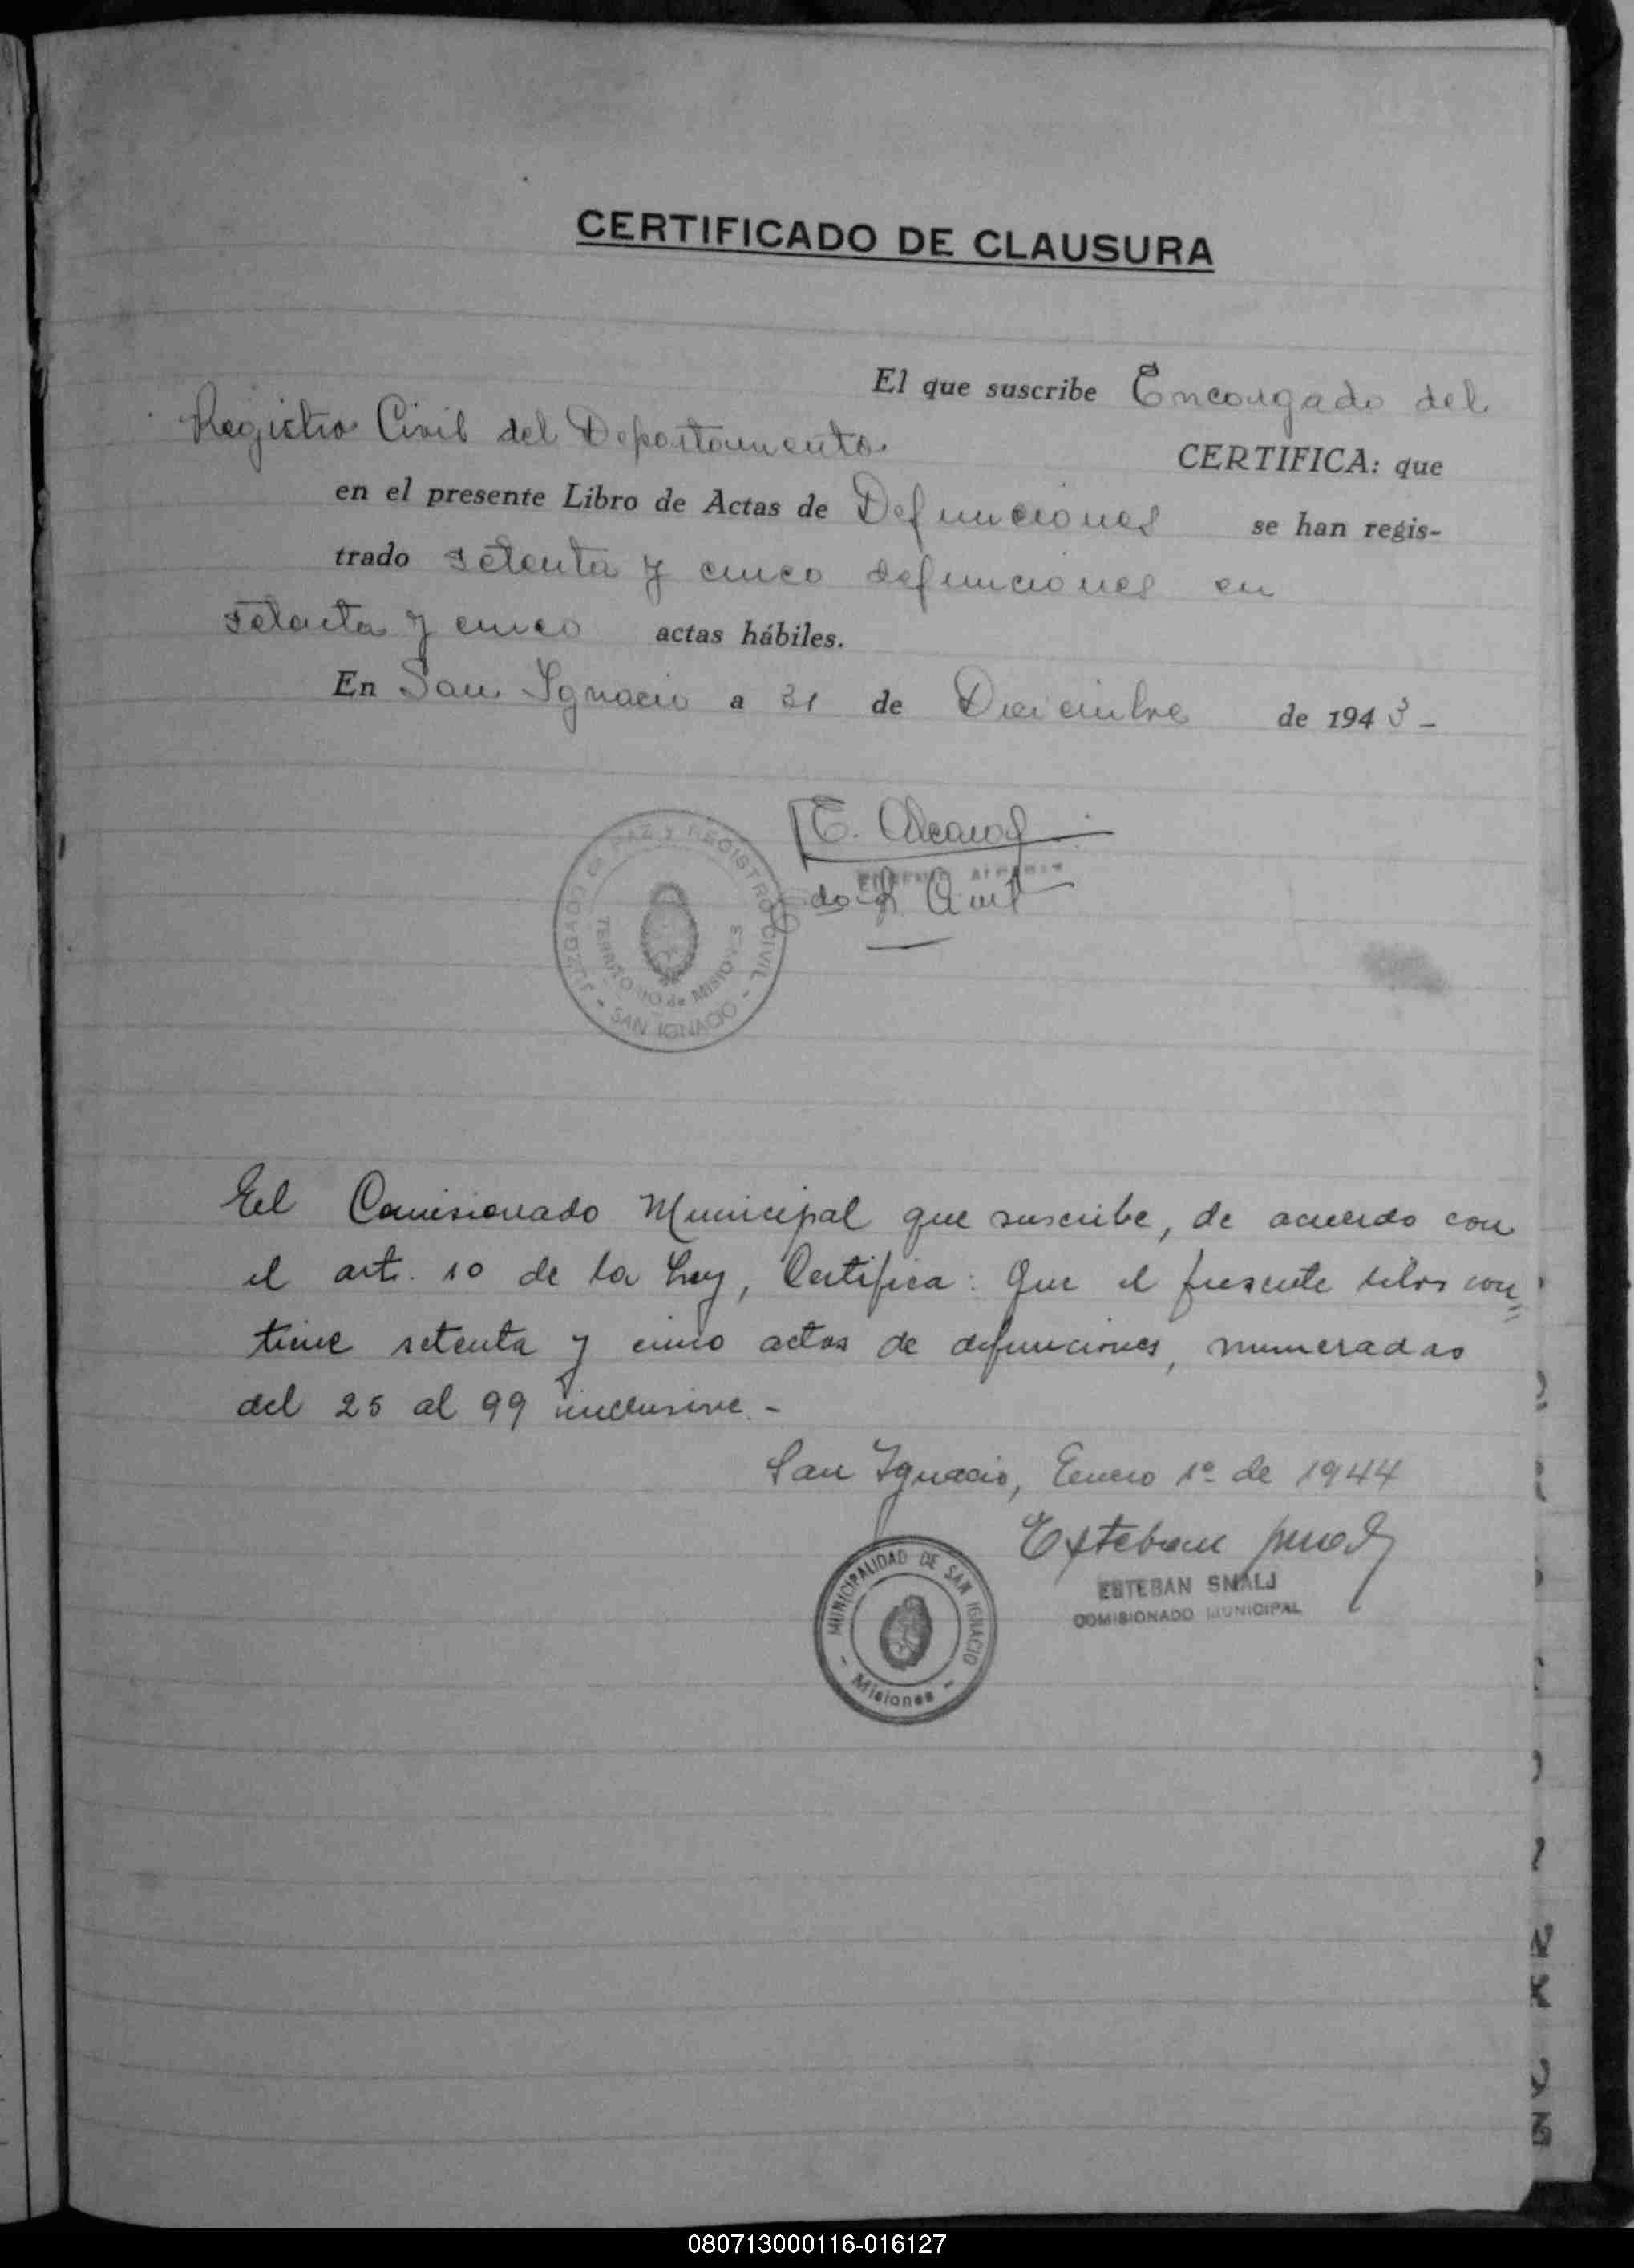 CERTIFICADO DE CLAUSURA
El que suscribe Encargado del
Registro Civil del Departamento CERTIFICA: que
en el presente Libro de Actas de Defunciones se han regis-
trado setenta y cinco defunciones en
setenta y cinco actas hábiles.
En San Ignacio a 31 de Diciembre de 1943-
JUZGADO de PAZ y REGISTRO CIVIL - SAN IGNACIO -
TERRITORIO de MISIONES
El Comisionado Municipal que suscribe, de acuerdo con
el art. 10 de la Ley, Certifica: Que el presente libro con=
tiene setenta y cinco actas de defunciones, numeradas
del 25 al 99 inclusive.-
San Ignacio, Enero 1º de 1944
Esteban Smalj
ESTEBAN SMALJ
COMISIONADO MUNICIPAL
MUNICIPALIDAD DE SAN IGNACIO
- Misiones -
080713000116-016127